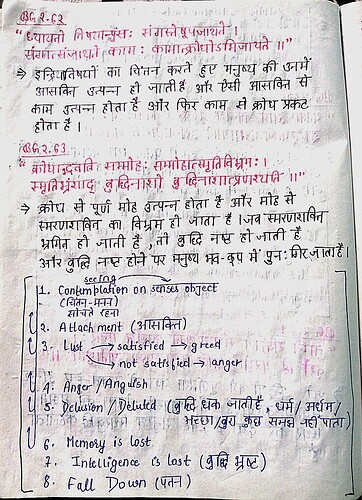 BG 2.62
"ध्यायतो विषयान्पुंसः संगस्तेषूपजायते।
संगात्संजायते कामः कामात्क्रोधोऽभिजायते॥"
⇒ इन्द्रियविषयों का चिंतन करते हुए मनुष्य की उनमें
आसक्ति उत्पन्न हो जाती है और ऐसी आसक्ति से
काम उत्पन्न होता है और फिर काम से क्रोध प्रकट
होता है।
BG 2.63
"क्रोधाद्भवति सम्मोहः सम्मोहात्स्मृतिविभ्रमः।
स्मृतिभ्रंशाद् बुद्धिनाशो बुद्धिनाशात्प्रणश्यति॥"
→ क्रोध से पूर्ण मोह उत्पन्न होता है और मोह से
स्मरणशक्ति का विभ्रम हो जाता है। जब स्मरणशक्ति
भ्रमित हो जाती है, तो बुद्धि नष्ट हो जाती है
और बुद्धि नष्ट होने पर मनुष्य भव-कूप में पुनः गिर जाता है।
seeing
1. Contemplation on senses object
(चिंतन-मनन)
सोचते रहना
2. Attachment (आसक्ति)
3. Lust → satisfied → greed
→ not satisfied → anger
4. Anger / Anguish
5. Delusion / Deluted (बुद्धि ढक जाती है, धर्म / अधर्म /
अच्छा / बुरा कुछ समझ नहीं पाता)
6. Memory is lost
7. Intelligence is lost (बुद्धि भ्रष्ट)
8. Fall Down (पतन)